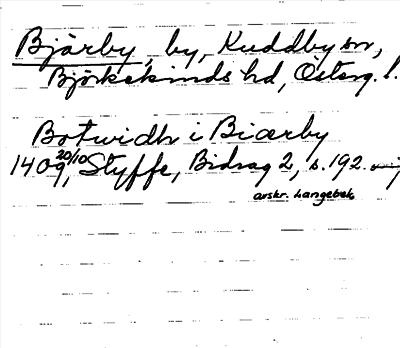 Bjärby, by, Kuddby sn,
Björkekinds hd, Österg. l.
Botwidh i Biærby
1409 20/10, Styffe, Bidrag 2, s. 192.
avskr. Langebek